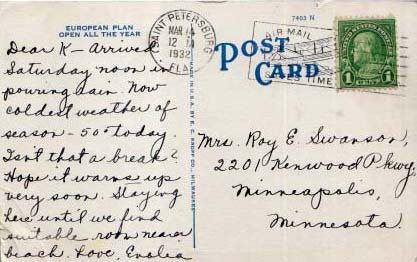 EUROPEAN PLAN
OPEN ALL THE YEAR
Dear K - Arrived
Saturday noon in
pouring rain. Now
coldest weather of
season - 50° today.
Isn't that a break?
Hope it warms up
very soon. Staying
here until we find
suitable room nearer
beach. Love, Evalea
MADE IN U.S.A. BY E. C. KROPP CO., MILWAUKEE
SAINT PETERSBURG
MAR 14
12 M
1932
FLA.
7403 N
AIR MAIL
TIME
POST
CARD
1 1
Mrs. Roy E. Swanson,
2201 Kenwood Pkwy,
Minneapolis,
Minnesota.